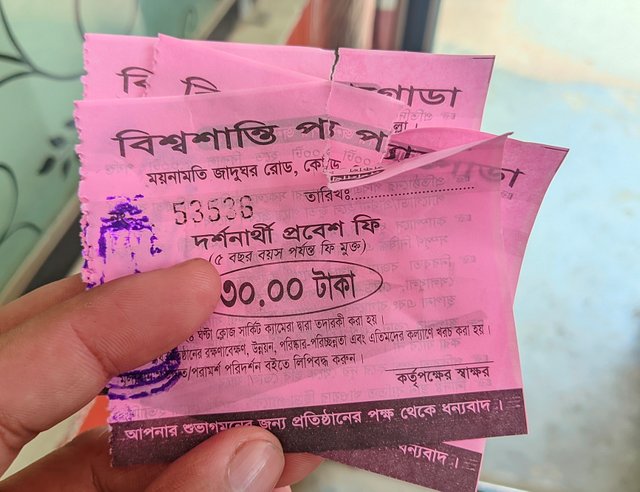 বি
বি
গোডা
বিশ্বশান্তি প্যা
ময়নামতি জাদুঘর রোড,
তারিখঃ
53538
দর্শনার্থী প্রবেশ ফি
(৫ বছর বয়স পর্যন্ত ফি মুক্ত)
৩০.০০ টাকা
ঘন্টা ক্লোজ সার্কিট ক্যামেরা দ্বারা তদারকী করা হয়।
রক্ষণাবেক্ষণ, উন্নয়ন, পরিষ্কার-পরিচ্ছন্নতা এবং এতিমদের কল্যাণে খরচ করা হয়।
পরামর্শ পরিদর্শন বইতে লিপিবদ্ধ করুন।
কর্তৃপক্ষের স্বাক্ষর
আপনার শুভাগমনের জন্য প্রতিষ্ঠানের পক্ষ থেকে ধন্যবাদ।
ধন্যবাদ।